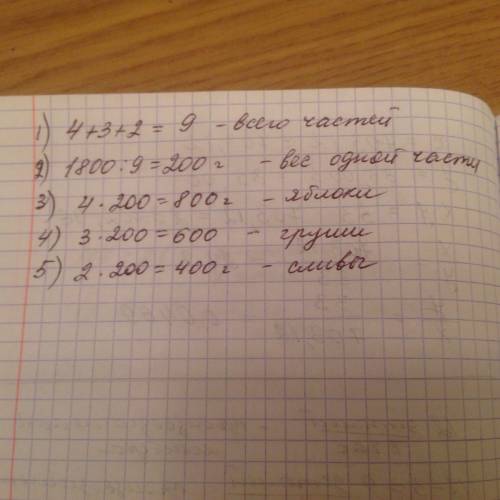 1) 4+3+2 = 9 - всего частей
2) 1800:9=200г - вес одной части
3) 4·200=800г - яблоки
4) 3·200=600 - груши
5) 2·200=400г - сливы